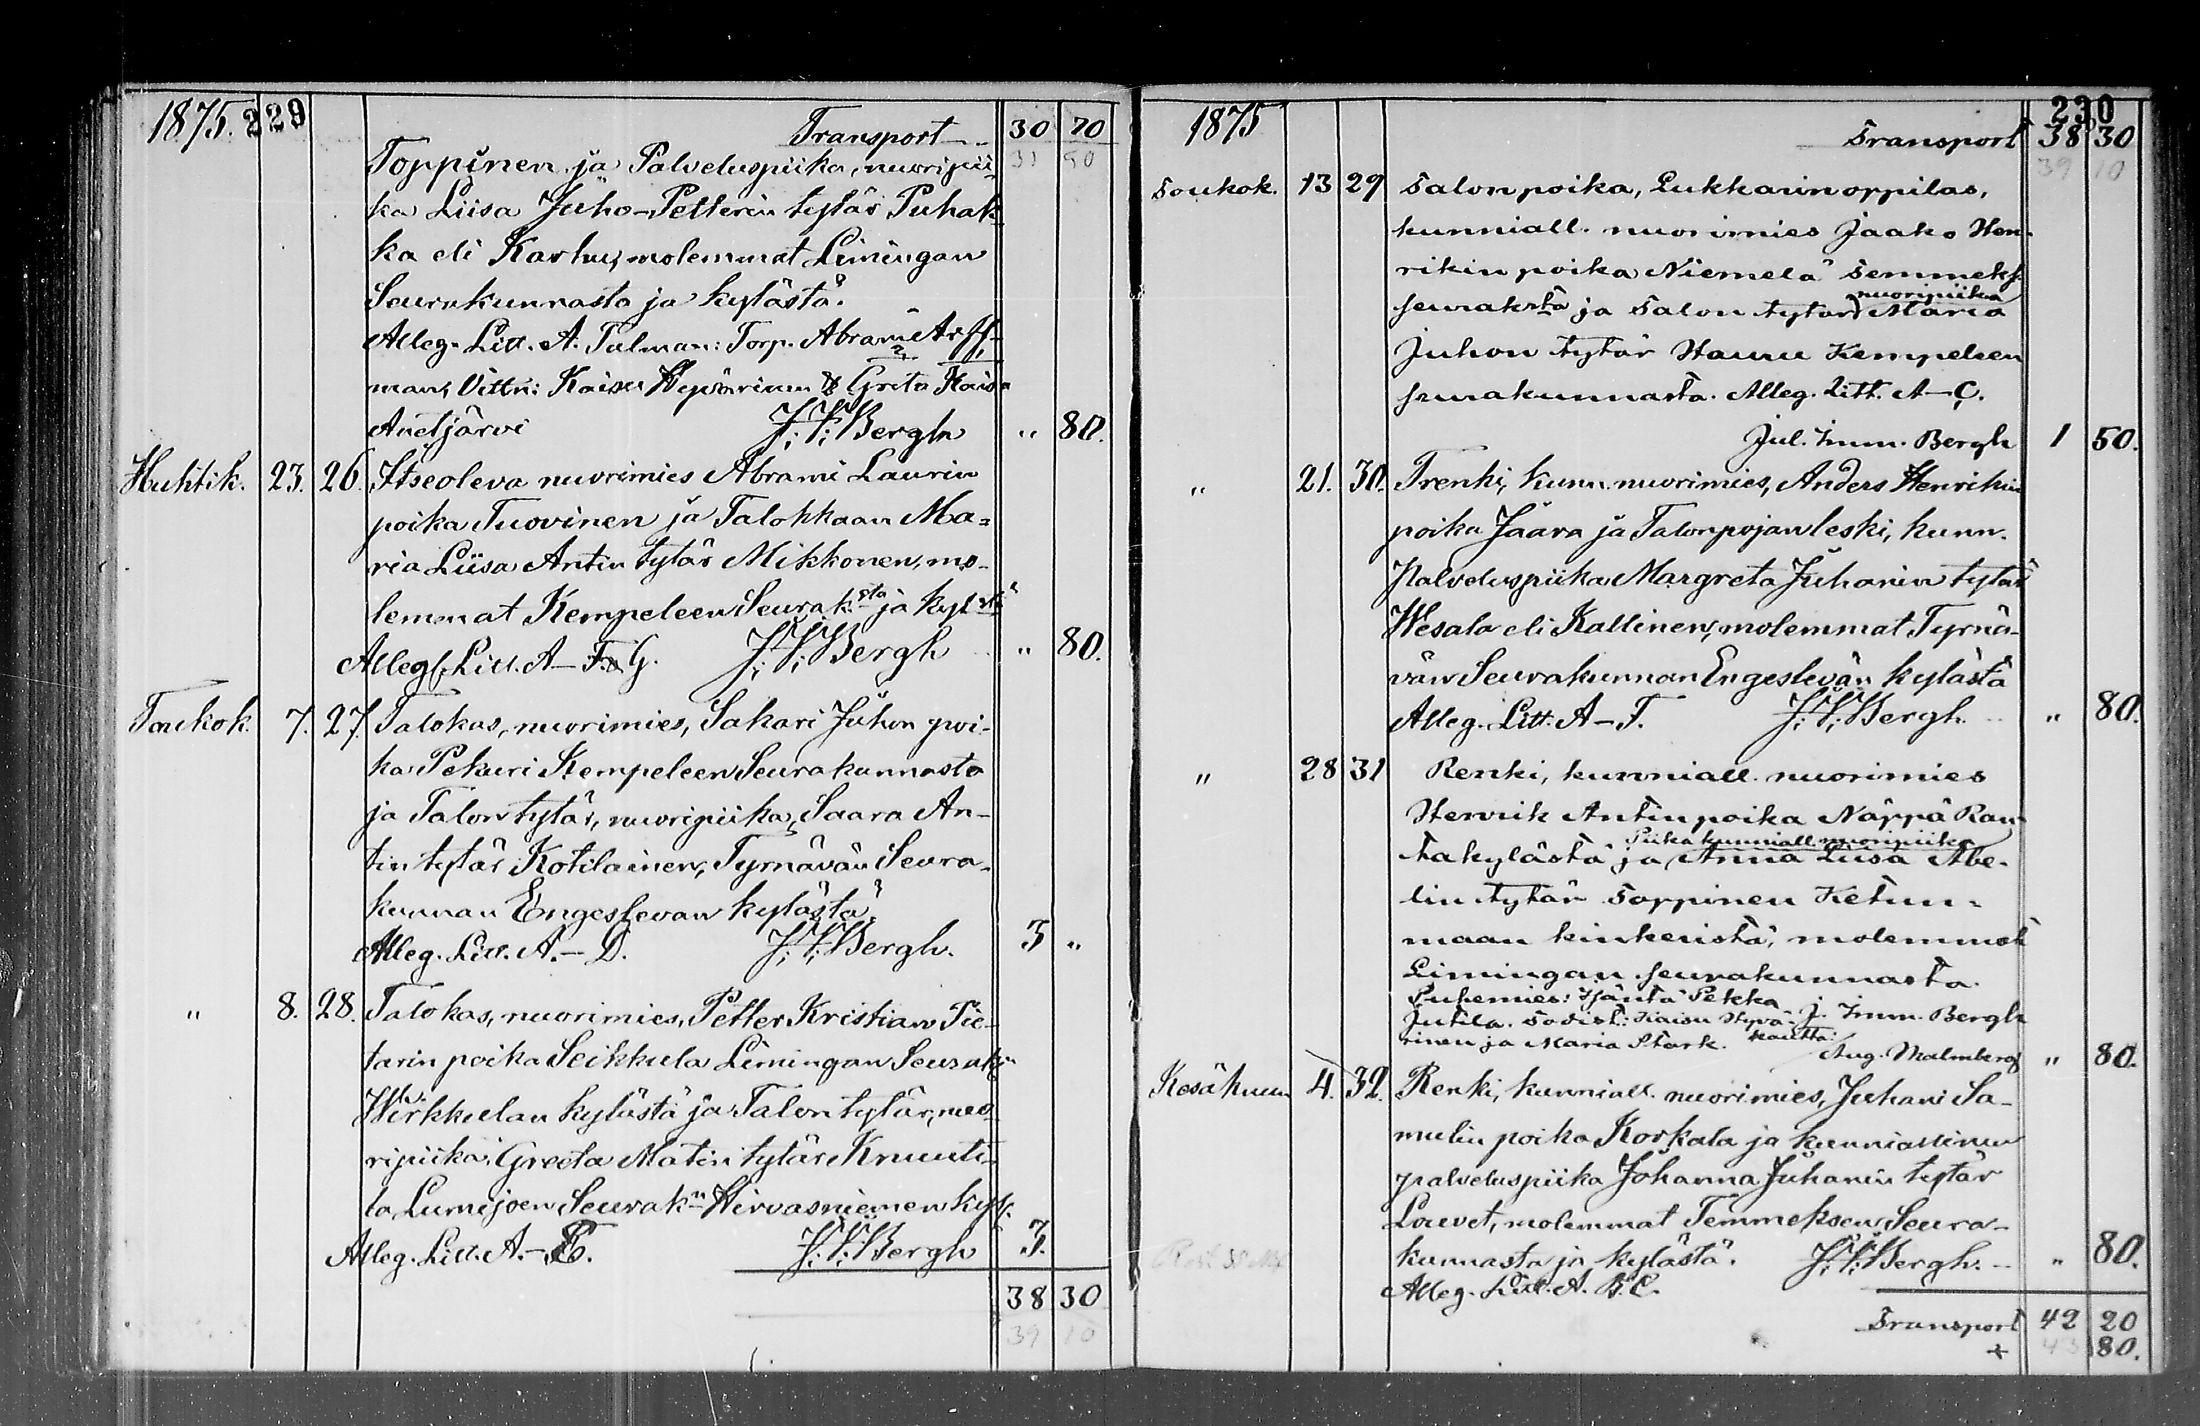 1875. 229
Transport 30 70
31 50
Toppinen ja Palveluspiika, nuoripii-
ka Liisa Juho-Petterin tytär Puhak-
ka eli Karhu, molemmat Limingan
Seurakunnasta ja kylästä.
Alleg. Litt. A. Talman: Torp. Abram
man, Vittn: Kaisu Hyvärinen & Greta Kaisa
Anetjärvi J. I. Bergh " 80.
Huhtik. 23. 26. Itseoleva nuorimies Abrami Laurin
poika Tuovinen ja Talokkaan Ma-
ria Liisa Antin tytär Mikkonen, mo-
lemmat Kempeleen Seurak:sta ja kyl:stä
Alleg. Litt. A–F. & G. J. I. Bergh " 80.
Toukok. 7. 27. Talokas, nuorimies, Sakari Juhon poi-
ka Pekuri Kempeleen Seurakunnasta
ja Talon tytär, nuoripiika, Saara An-
tin tytär Kotilainen, Tyrnävän Seura-
kunnan Engeslevan kylästä.
Alleg. Litt. A.–D. J. I. Bergh. 3 "
" 8. 28. Talokas, nuorimies, Petter Kristian Pie-
tarin poika Seikkula Limingan Seurak:n
Wirkkulan kylästä ja Talon tytär, nuo-
ripiika, Greeta Matin tytär Knuuti-
la Lumijoen Seurak:n Hirvasniemen kyl.
Alleg. Litt. A.–E. J. I. Bergh 3.
38 30
39 10
1875 230
Transport 38 30
39 10
Toukok. 13 29 Talon poika, Lukkarin oppilas,
kunniall. nuorimies Jaako Hen-
rikin poika Niemelä Temmeks.
seurak:sta ja Talon tytär nuoripiika Maria
Juhon tytär Hannu Kempeleen
seurakunnasta. Alleg. Litt. A–C.
Jul. Imm. Bergh 1 50.
" 21. 30. Trenki, kunn. nuorimies, Anders Henrikin
poika Jaara ja Talonpojan leski, kunn.
Palveluspiika Margreta Juhanin tytär
Wesala eli Kallinen, molemmat Tyrnä-
vän Seurakunnan Engeslevän kylästä
Alleg. Litt. A–F. J. I. Bergh. " 80.
" 28 31 Renki, kunniall. nuorimies
Henrik Antin poika Näppä Ran-
takylästä ja Piika kunniall. nuoripiika Anna Liisa Abe-
lin tytär Toppinen Ketun-
maan kinkeristä, molemmat
Limingan seurakunnasta.
Puhemies: Hjäntä Pekka
Jutila. Todist: Kaisu Hyvä- J. Imm. Bergh
rinen ja Maria Stark. kautta:
Aug. Malmberg " 80.
Kesäkuun 4. 32. Renki, kunniall. nuorimies, Juhani Sa-
mulin poika Korkala ja kunniallinen
palveluspiika Johanna Juhanin tytär
Louvet, molemmat Temmeksen Seura-
kunnasta ja kylästä. J. I. Bergh. " 80.
Alleg. Litt. A. B. C.
Transport 42 20
+ 43 80.